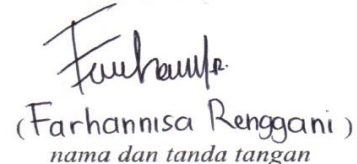 (Farhannisa Renggani)
nama dan tanda tangan